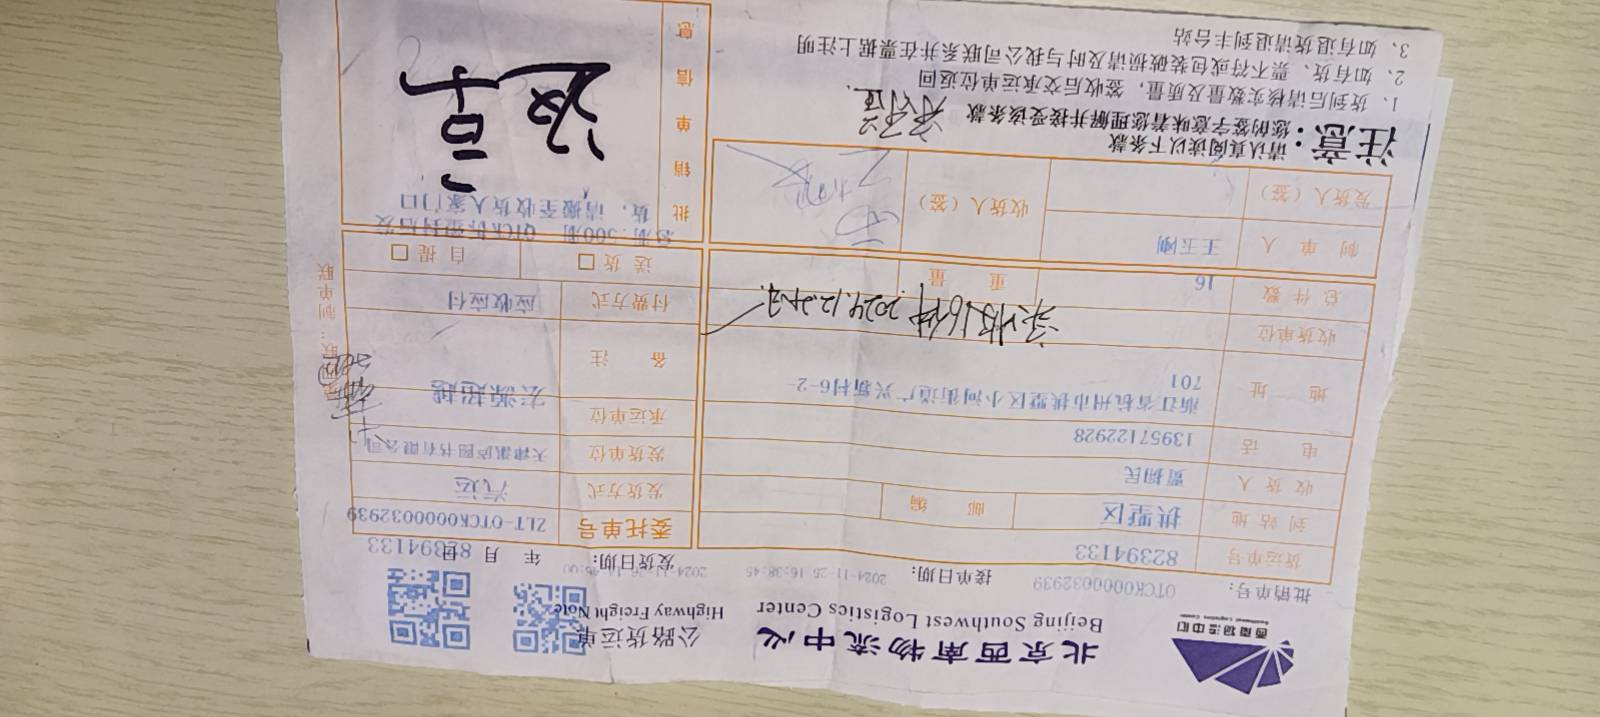 西南物流中心
Southwest Logistics Center
北京西南物流中心
Beijing Southwest Logistics Center
公路货运单
Highway Freight Note
批销单号: OTCK0000032939
接单日期: 2024-11-25 16:38:45
发货日期: 年 月 日
82394133
货运单号 82394133
委托单号 ZLT-OTCK0000032939
到站地 拱墅区 邮 编
发货方式 汽运
收货人 贾拥民
发货单位
电 话 13957122928
承运单位 宏源超越
地 址 浙江省杭州市拱墅区小河街道广兴新村6-2-
701
备 注
收货单位
实收16件 2024.12.2
付费方式 应收应付
总件数 16 重 量
送货 □ 自提 □
制 单 人 王玉刚
收货人(签)
发货人(签)
批销单信息
货, 请搬至收货人家门口
注意:
请认真阅读以下条款
您的签字意味着您理解并接受该条款
1、货到后请核实数量及质量, 签收后交承运单位返回
2、如有货、票不符或包装破损请及时与我公司联系并在票据上注明
3、如有退货请退到丰台站